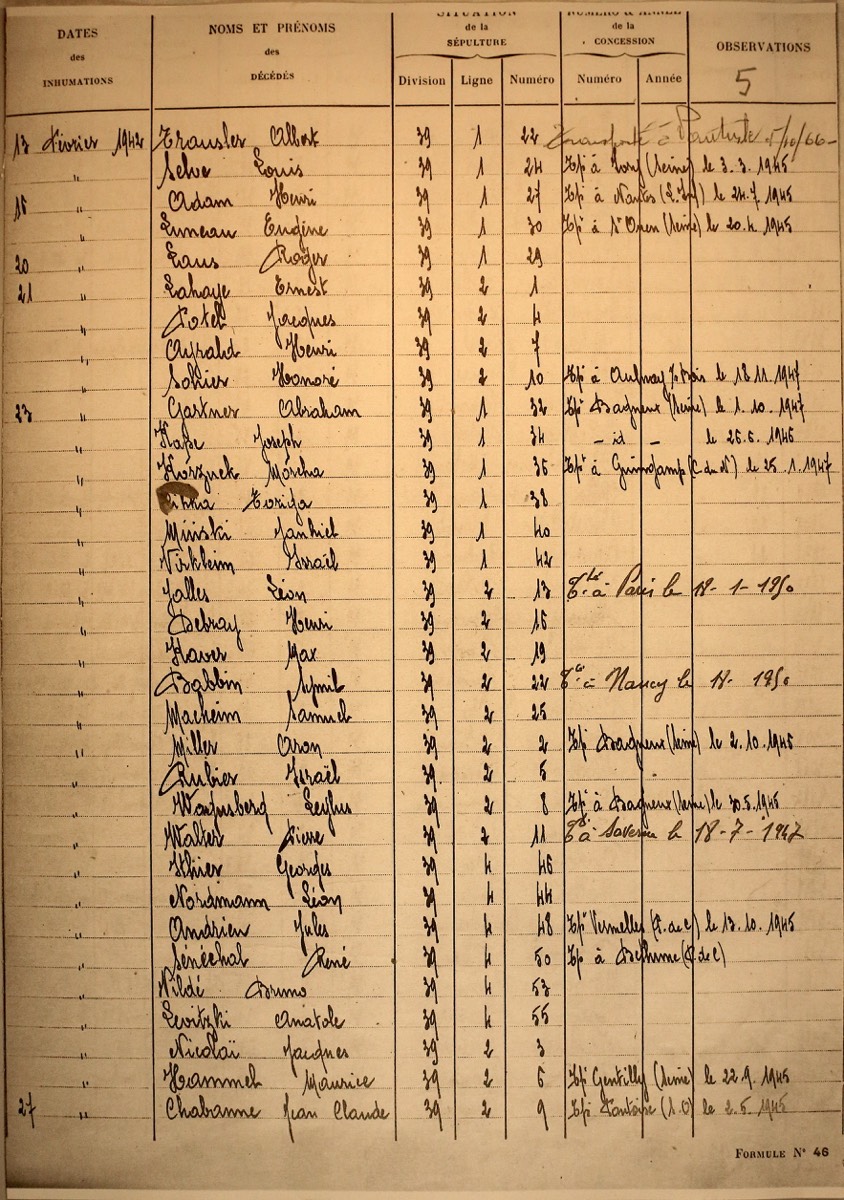 DATES des INHUMATIONS
NOMS ET PRÉNOMS des DÉCÉDÉS
SITUATION de la SÉPULTURE
NUMÉRO & ANNÉE de la CONCESSION
OBSERVATIONS
Division Ligne Numéro Numéro Année 5
13 Février 1942 Trausler Albert 39 1 22 Transporté à
" Selve Louis 39 1 24 Tpé à Ivry (Seine) le 3.3.1945
16 " Adam Henri 39 1 27 Tpé à Nantes (L.Inf) le 24.7.1945
" Luneau Eugène 39 1 30 Tpé à St Ouen (Seine) le 20.4.1945
20 " Laus Roger 39 1 29
21 " Lahaye Ernest 39 2 1
" Potel Jacques 39 2 4
" Ayrald Henri 39 2 7
" Sohier Honoré 39 2 10 Tpé à Aulnay s/Bois le 18.11.1947
23 " Gartner Abraham 39 1 32 Tpé Bagneux (Seine) le 1.10.1947
" Joseph 39 1 34 - id - le 26.6.1945
" Korznek Moscha 39 1 36 Tpé à Guingamp (C. du N) le 25.1.1947
" 39 1 38
" Minski Jankiel 39 1 40
" Virkheim Israël 39 1 42
" Jalles Léon 39 2 13 Té à Paris le 18-1-1950
" Debray Henri 39 2 16
" Haver Max 39 2 19
" Babbin 39 2 22 Té à Nancy le 18- 1950
" Macheim Samuel 39 2 25
" Miller Aron 39 2 2 Tpé Bagneux (Seine) le 2.10.1945
" Rubier Israël 39 2 5
" Lejbus 39 2 8 Tpé à Bagneux (Seine) le 30.5.1945
" Walter Pierre 39 2 11 Té à Saverne le 18-7-1947
" Ithier Georges 39 4 46
" Nordmann Léon 39 4 44
" Andrieu Jules 39 4 48 Tpé Vermelles (P. de C) le 13.10.1945
" Sénéchal René 39 4 50 Tpé à Béthune (P. de C)
" Vildé Bruno 39 4 53
" Levitzki Anatole 39 4 55
" Nicolaï Jacques 39 2 3
" Hammel Maurice 39 2 6 Tpé Gentilly (Seine) le 22.9.1945
27 " Chabanne Jean Claude 39 2 9 Tpé Pontoise (S.O) le 2.5.1945
FORMULE N° 46